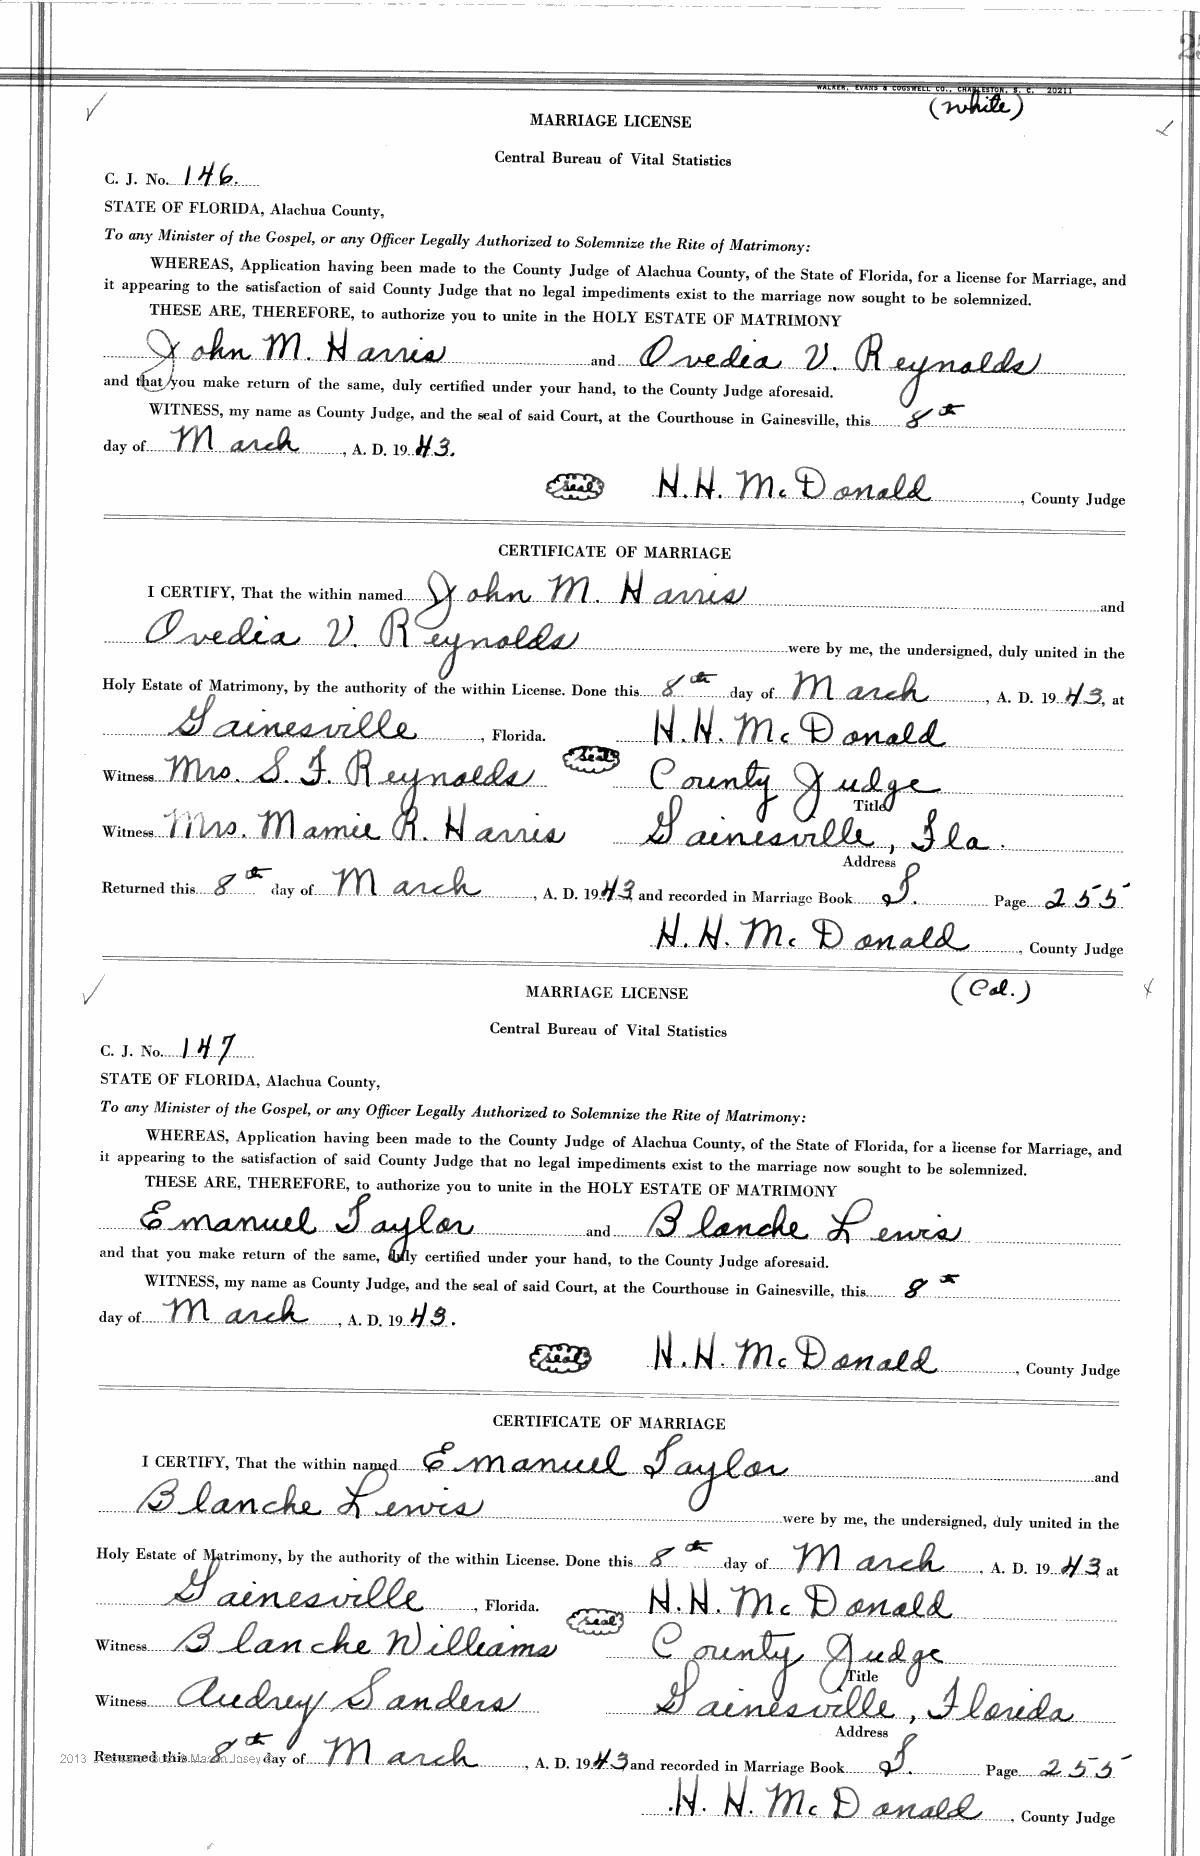 WALKER, EVANS & COGSWELL CO., CHARLESTON, S. C. 20211
(White)
MARRIAGE LICENSE
Central Bureau of Vital Statistics
C. J. No. 146.
STATE OF FLORIDA, Alachua County,
To any Minister of the Gospel, or any Officer Legally Authorized to Solemnize the Rite of Matrimony:
WHEREAS, Application having been made to the County Judge of Alachua County, of the State of Florida, for a license for Marriage, and
it appearing to the satisfaction of said County Judge that no legal impediments exist to the marriage now sought to be solemnized.
THESE ARE, THEREFORE, to authorize you to unite in the HOLY ESTATE OF MATRIMONY
John M. Harris and Ovedia V. Reynolds
and that you make return of the same, duly certified under your hand, to the County Judge aforesaid.
WITNESS, my name as County Judge, and the seal of said Court, at the Courthouse in Gainesville, this 8th
day of March, A. D. 1943.
Seal H.H. McDonald, County Judge
CERTIFICATE OF MARRIAGE
I CERTIFY, That the within named John M. Harris and
Ovedia V. Reynolds were by me, the undersigned, duly united in the
Holy Estate of Matrimony, by the authority of the within License. Done this 8th day of March, A. D. 1943, at
Gainesville, Florida. H.H. McDonald
Seal
Witness Mrs. S. F. Reynolds County Judge
Title
Witness Mrs. Mamie R. Harris Gainesville, Fla.
Address
Returned this 8th day of March, A. D. 1943 and recorded in Marriage Book S. Page 255
H. H. McDonald, County Judge
(Col.)
MARRIAGE LICENSE
Central Bureau of Vital Statistics
C. J. No. 147
STATE OF FLORIDA, Alachua County,
To any Minister of the Gospel, or any Officer Legally Authorized to Solemnize the Rite of Matrimony:
WHEREAS, Application having been made to the County Judge of Alachua County, of the State of Florida, for a license for Marriage, and
it appearing to the satisfaction of said County Judge that no legal impediments exist to the marriage now sought to be solemnized.
THESE ARE, THEREFORE, to authorize you to unite in the HOLY ESTATE OF MATRIMONY
Emanuel Taylor and Blanche Lewis
and that you make return of the same, duly certified under your hand, to the County Judge aforesaid.
WITNESS, my name as County Judge, and the seal of said Court, at the Courthouse in Gainesville, this 8th
day of March, A. D. 1943.
Seal H.H. McDonald, County Judge
CERTIFICATE OF MARRIAGE
I CERTIFY, That the within named Emanuel Taylor and
Blanche Lewis were by me, the undersigned, duly united in the
Holy Estate of Matrimony, by the authority of the within License. Done this 8th day of March, A. D. 1943 at
Gainesville, Florida. H.H. McDonald
Seal
Witness Blanche Williams County Judge
Title
Witness Audrey Sanders Gainesville, Florida
Address
Returned this 8th day of March, A. D. 1943 and recorded in Marriage Book S. Page 255
2013
H. H. McDonald, County Judge